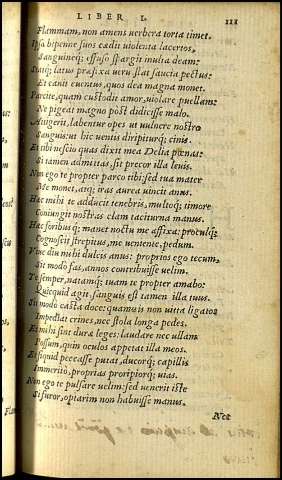 LIBER I. 111
Flammam, non amens verbera torta timet.
Ipsa bipenne suos cædit violenta lacertos,
Sanguineq; effuso spargit inulta deam:
Statq; latus præfixa veru, stat saucia pectus:
Et canit eventus, quos dea magna monet.
Parcite, quam custodit amor, violare puellam:
Ne pigeat magno pòst didicisse malo.
Attigerit, labentur opes ut vulnere nostro
Sanguis: ut hic ventis diripiturq; cinis.
Et tibi nescio quas dixit mea Delia pœnas:
Si tamen admittas, sit precor illa levis.
Non ego te propter parco tibi: sed tua mater
Me monet, atq; iras aurea vincit anus.
Hæc mihi te adducit tenebris, multoq; timore
Coniungit nostras clam taciturna manus.
Hæc foribusq; manet noctu me affixa: proculq;
Cognoscit strepitus, me veniente, pedum.
Vive diu mihi dulcis anus: proprios ego tecum,
Sit modò fas, annos contribuisse velim.
Te semper, natamq; tuam te propter amabo:
Quicquid agit, sanguis est tamen illa tuus.
Sit modò casta doce: quamvis non vitta ligatos
Impediat crines, nec stola longa pedes.
Et mihi sint duræ leges: laudare nec ullam
Possum, quin oculos appetat illa meos.
Et siquid peccasse putat, ducorq; capillis
Immeritò, proprias proripiorq; vias.
Non ego te pulsare velim: sed venerit iste
Si furor, optarim non habuisse manus.
Nec